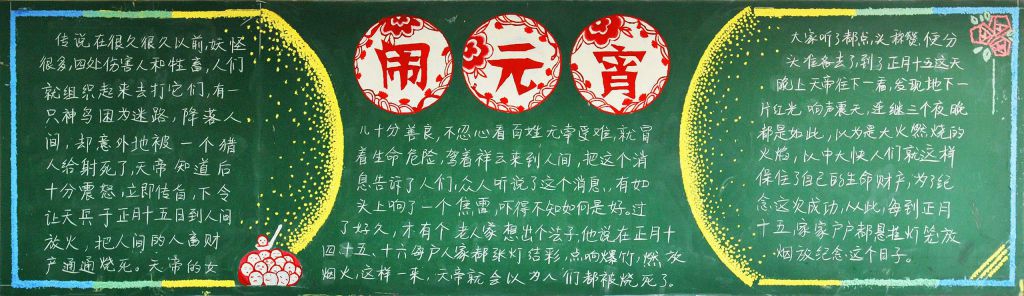 闹元宵
传说在很久很久以前,妖怪
很多,四处伤害人和牲畜,人们
就组织起来去打它们,有一
只神鸟因为迷路,降落人
间,却意外地被一个猎
人给射死了,天帝知道后
十分震怒,立即传旨,下令
让天兵于正月十五日到人间
放火,把人间的人畜财
产通通烧死。天帝的女
儿十分善良,不忍心看百姓无辜受难,就冒
着生命危险,驾着祥云来到人间,把这个消
息告诉了人们,众人听说了这个消息,有如
头上响了一个焦雷,吓得不知如何是好。过
了好久,才有个老人家想出个法子,他说在正月十
四、十五、十六每户人家都张灯结彩,点响爆竹,燃放
烟火,这样一来,天帝就会以为人们都被烧死了。
大家听了都点头称赞,便分
头准备去了,到了正月十五这天
晚上天帝往下一看,发现地下一
片红光,响声震天,连继三个夜晚
都是如此,以为是大火燃烧的
火焰,以中大快人们就这样
保住了自己的生命财产,为了纪
念这次成功,从此,每到正月
十五,家家户户都悬挂灯笼放
烟放纪念这个日子。